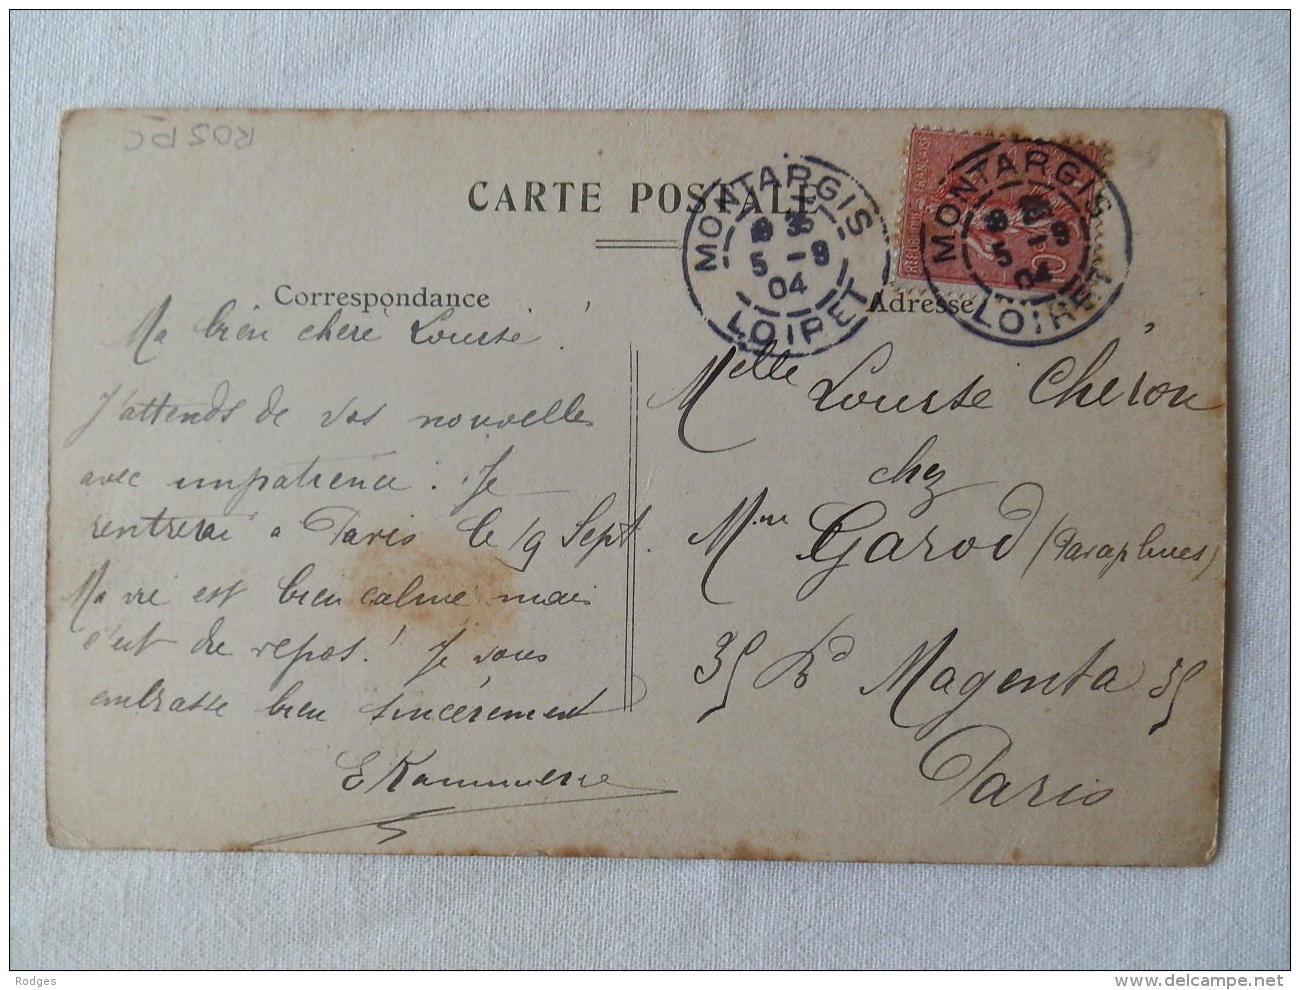 CARTE POSTALE
MONTARGIS
5 - 9
04
LOIRET
MONTARGIS
5 - 9
04
LOIRET
Correspondance
Adresse
Ma bien chère Louise !
J'attends de vos nouvelles
avec impatience. Je
rentrerai à Paris le 19 Sept.
Ma vie est bien calme mais
c'est du repos ! Je vous
embrasse bien sincèrement
Melle Louise Chéron
chez
Mme Garod (Parapluies)
35 Bd Magenta 35
Paris
Rodges
www.delcampe.net